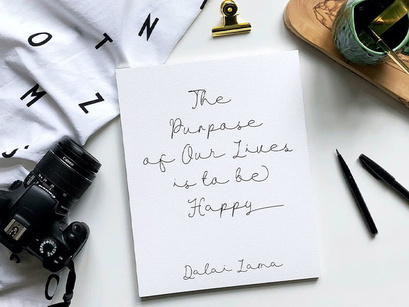 O T N
M Z
S
O
The
Purpose
of Our Lives
is to be
Happy
Dalai Lama